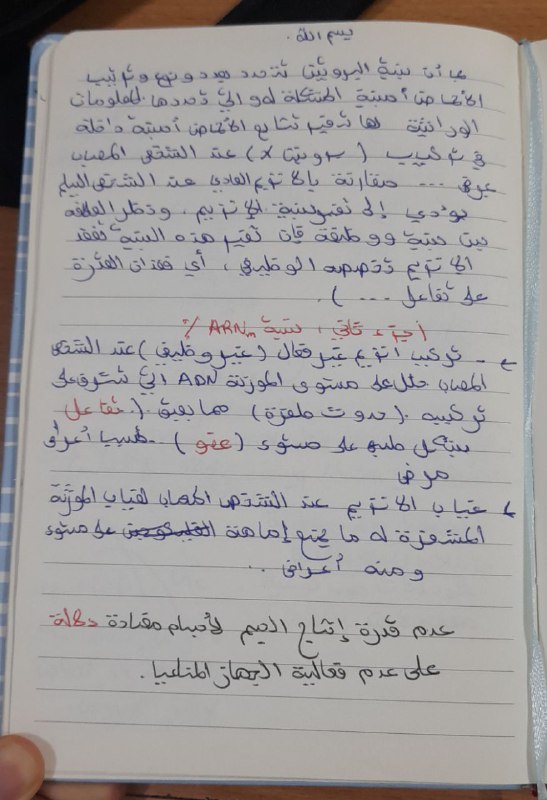 بسم الله.
بما أن بنية البروتين تتحدد بعدد ونوع وترتيب
الأحماض أمينية المشكلة له والتي تحددها المعلومات
الوراثية فما ترتيب تتابع الأحماض أمينية داخلة
في تركيب (بروتين X) عند الشخص المصاب
بمرض ... مقارنة بالانزيم العادي عند الشخص السليم
يؤدي إلى تغير بنية الانزيم، ونظرا للعلاقة
بين بنية ووظيفة فإن تغير هذه البنية تفقد
الانزيم تخصصه الوظيفي، أي فقدان القدرة
على تفاعل ... ).
(جزء ثاني، بنية ARNm /
- تركيب انزيم غير فعال (غير وظيفي) عند الشخص
المصاب خلل على مستوى المورثة ADN التي تشرف على
تركيبه (حدوث طفرة) مما يعيق (.تفاعل
بشكل طبيعي على مستوى (عضو) مسببا أعراض
مرض
غياب الانزيم عند الشخص المصاب لغياب المورثة
المشفرة له ما يمنع إماهة على مستوى
ومنه أعراض ..
عدم قدرة إنتاج الجسم لأجسام مضادة دلالة
على عدم فعالية الجهاز المناعيا.